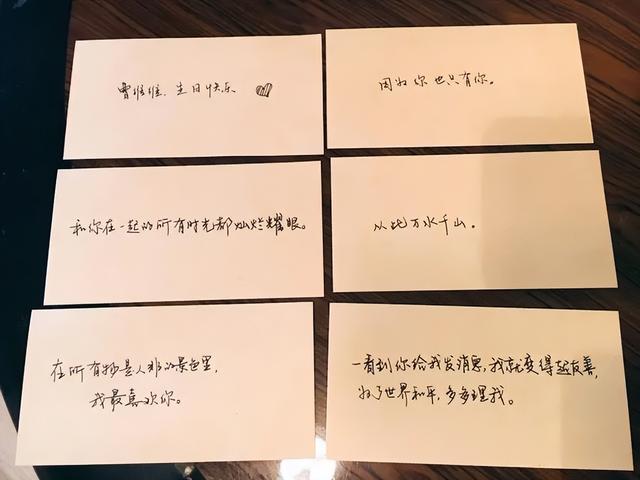 曾维维.生日快乐
因为你也只有你。
和你在一起的所有时光都灿烂耀眼。
从此万水千山。
在所有物是人非的景色里,
我最喜欢你。
一看到你给我发消息,我就变得超友善,
为了世界和平,多多理我。